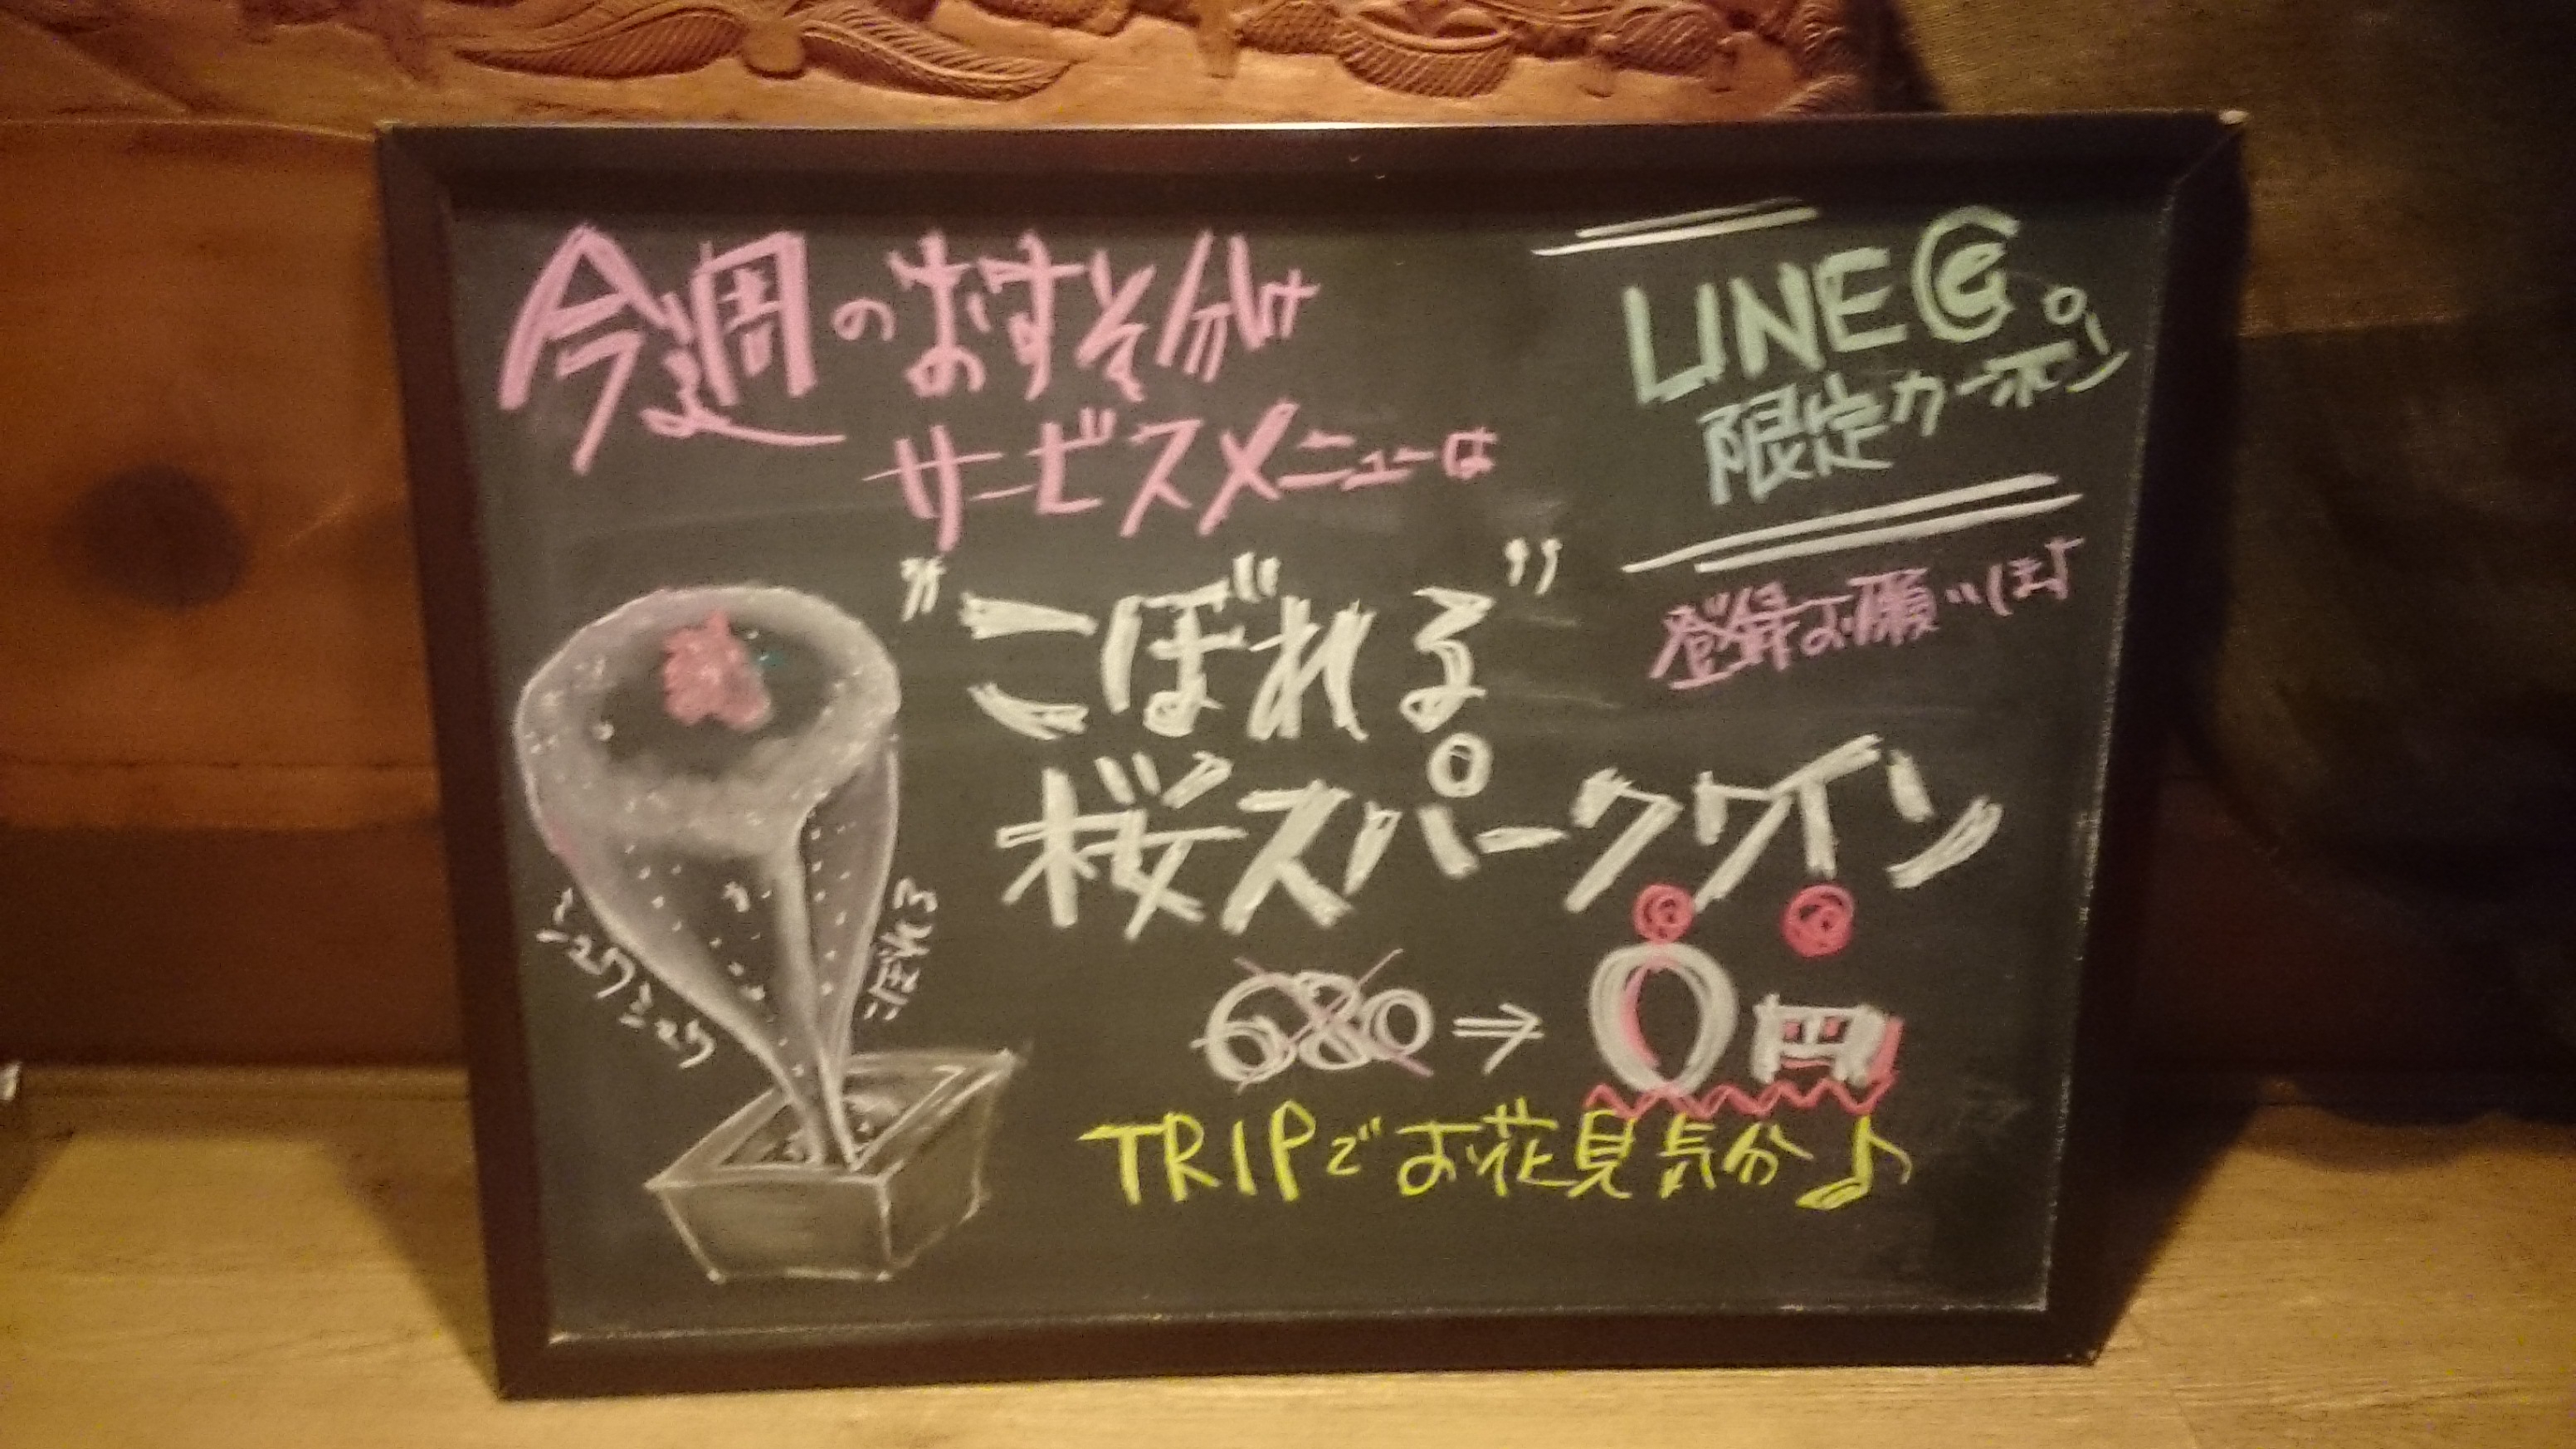 今週のおすそ分け
サービスメニューは
LINE@
限定クーポン
登録お願いします
"こぼれる"
桜スパークワイン
680⇒0円
TRIPでお花見気分♪
シュワシュワ
こぼれる